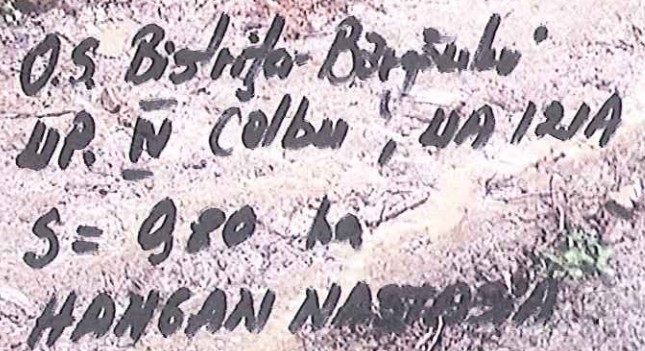 O.S. Bistrița Bârgăului
UP. IV Colbu ; UA 121A
S= 0,80 ha
HANGAN NASTASIA